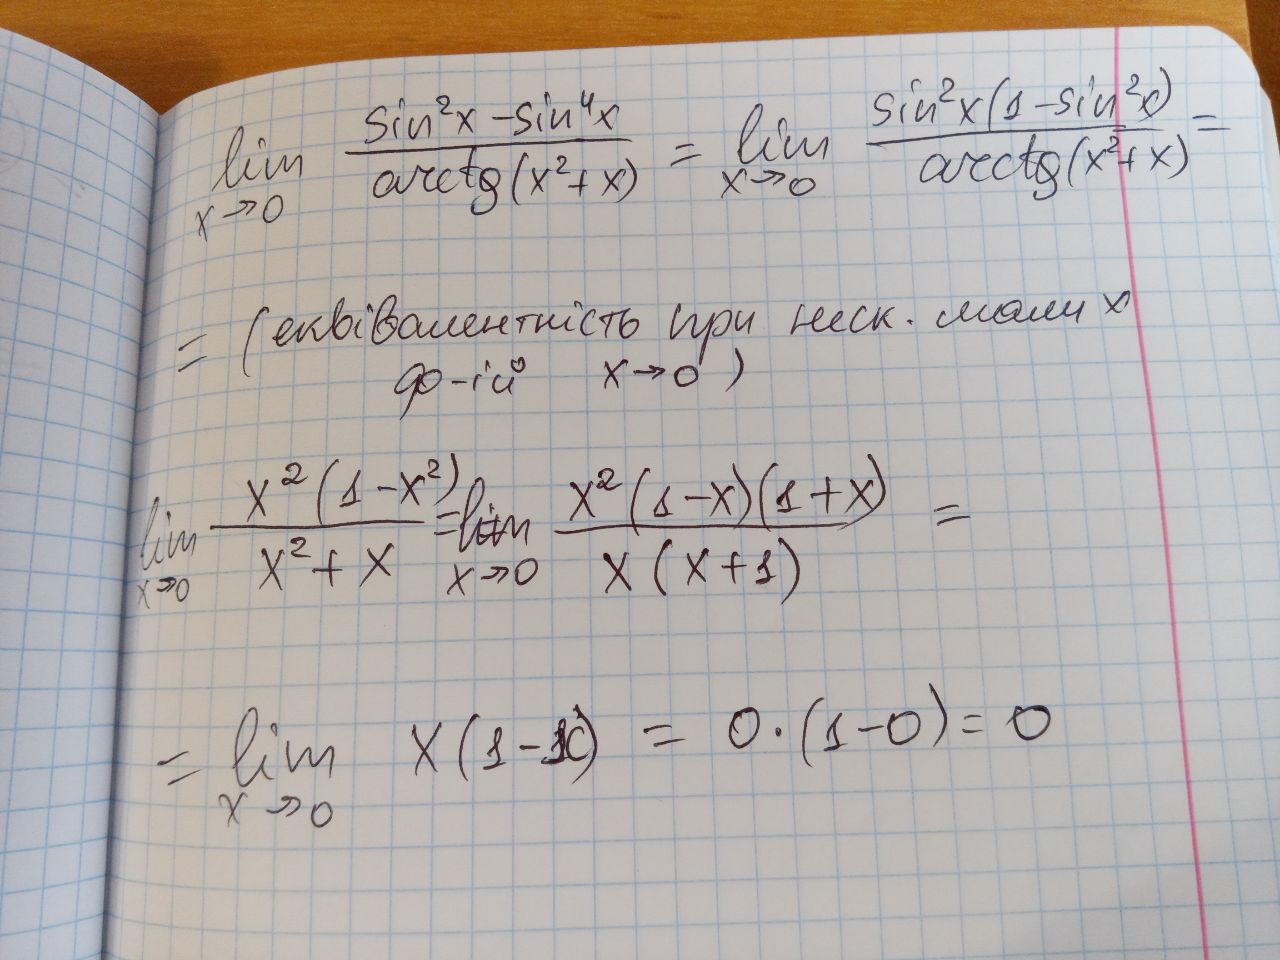 lim x→0 (sin²x - sin⁴x)/(arctg(x²+x)) = lim x→0 (sin²x(1-sin²x))/(arctg(x²+x)) =
= (еквівалентність при неск. малих
ф-ій x→0)
lim x→0 (x²(1-x²))/(x²+x) = lim x→0 (x²(1-x)(1+x))/(x(x+1)) =
= lim x→0 x(1-x) = 0·(1-0) = 0